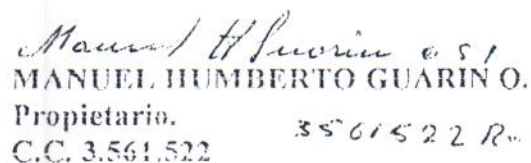 Manuel H Guarin O S1
MANUEL HUMBERTO GUARIN O.
Propietario.
3561522 R
C.C. 3.561.522